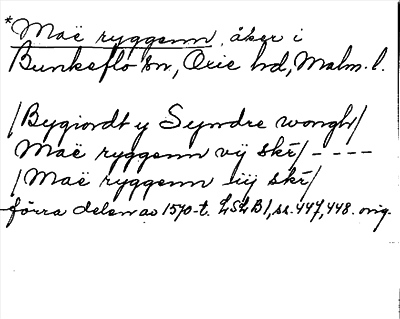 *Maë ryggenn, åker i
Bunkeflo sn, Oxie hd, Malm. l.
/Bygiordt y Syndre wongh/
Maë ryggenn vij skr/ - - - -
/Maë ryggenn iiij skr/
förra delen av 1570-t. LSLB1, ss. 447, 448. orig.